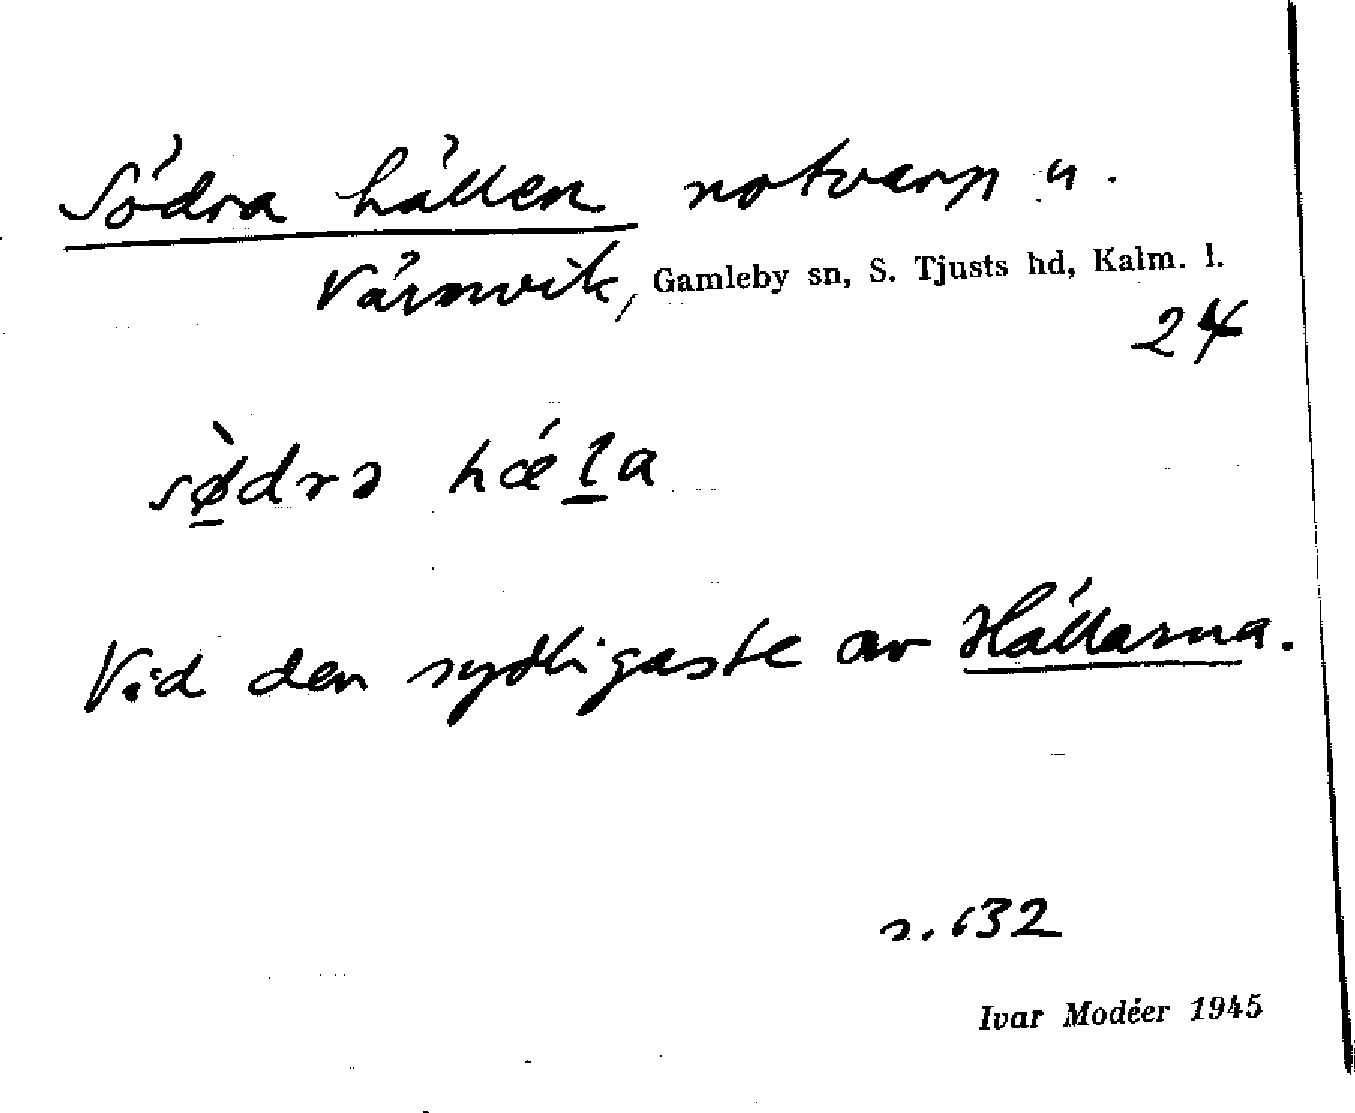 Södra hällen notvarp u.
Värmvik, Gamleby sn, S. Tjusts hd, Kalm. l.
24
sø̀drə hǽla
Vid den sydligaste av Hällarna.
s. 632
Ivar Modéer 1945